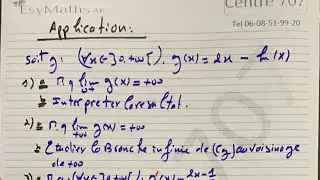 EsyMath
Centre 707
Tel 06-08-51-99-20
Application:
Soit g: (∀x∈]0,+∞[), g(x) = 2x - ln(x)
1) a M.q lim g(x) = +∞
0+
b Interpreter le resultat.
2) a M.q lim g(x) = +∞
+∞
b Etudier la Branche infinie de (Cg) au voisinage
de +∞
2x-1